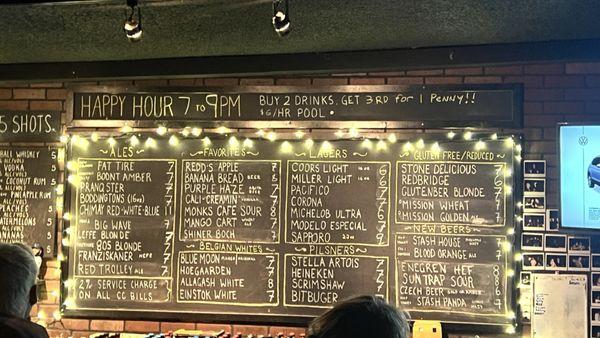 HAPPY HOUR 7 TO 9PM BUY 2 DRINKS. GET 3RD for 1 Penny!!
$6/HR POOL
5 SHOTS.
WHISKY 5
VODKA 5
COCONUT RUM 5
APPLE RUM
~ALES~
FAT TIRE 7
BOONT AMBER 7
PRANQSTER 7
BODDINGTONS (16oz) 7
CHIMAY RED-WHITE-BLUE 11
BIG WAVE 7
LEFFE BLONDE 7
805 BLONDE 7
FRANZISKANER 7
RED TROLLEY ALE 7
2% SERVICE CHARGE
ON ALL CC BILLS
~FAVORITES~
REDD'S APPLE 7
BANANA BREAD BEER 8
PURPLE HAZE 7
CALI-CREAMIN' 7
MONKS CAFE SOUR 8
MANGO CART 7
SHINER BOCH 7
~BELGIAN WHITES~
BLUE MOON 7
HOEGAARDEN 7
ALLAGASH WHITE 8
EINSTOK WHITE 7
~LAGERS~
COORS LIGHT 16oz 6
MILLER LIGHT 16oz 6
PACIFICO 7
CORONA 7
MICHELOB ULTRA 7
MODELO ESPECIAL 7
SAPPORO 9
~PILSNERS~
STELLA ARTOIS 7
HEINEKEN 7
SCRIMSHAW 7
BITBUGER 7
~GLUTEN FREE/REDUCED~
STONE DELICIOUS 7
REDBRIDGE 6
GLUTENBER BLONDE 7
MISSION WHEAT 7
MISSION GOLDEN 7
~NEW BEERS~
STASH HOUSE 7
BLOOD ORANGE 7
ENEGREN HEF 8
SUN TRAP SOUR 8
CZECH BEER 6
STASH PANDA 7